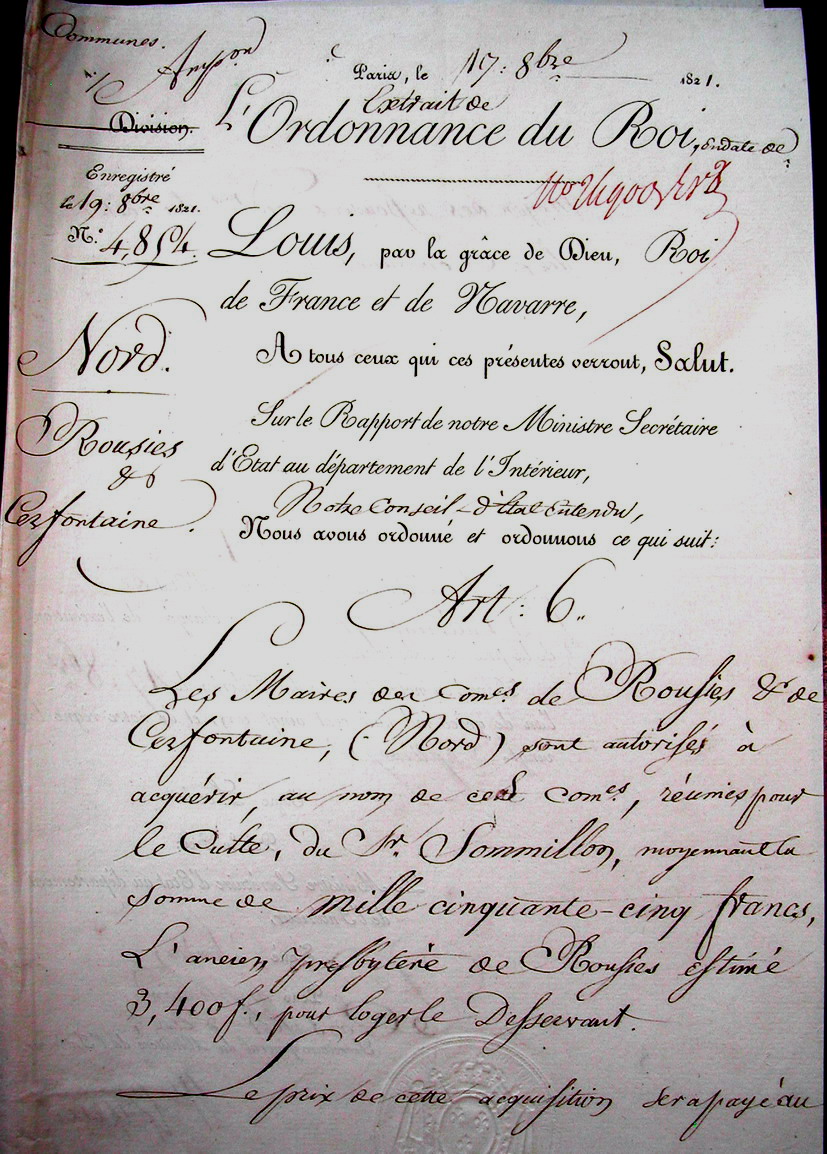 Communes.
Paris, le 17: 8bre 1821.
Extrait de
Division.
L'Ordonnance du Roi, en date de
Enregistré
le 19: 8bre 1821.
N.° 4,854.
Louis, par la grâce de Dieu, Roi
de France et de Navarre,
Nord.
A tous ceux qui ces présentes verront, Salut.
Rousies
&
Cerfontaine.
Sur le Rapport de notre Ministre Secrétaire
d'Etat au département de l'Intérieur,
Notre Conseil-d'Etat Entendu,
Nous avons ordonné et ordonnons ce qui suit:
Art: 6.
Les Maires des Com.es de Rousies & de
Cerfontaine, (Nord) sont autorisés à
acquérir, au nom de ces Com.es, réunies pour
le Culte, du Sr. Sommillon, moyennant la
somme de Mille cinquante-cinq francs,
L'ancien presbytère de Rousies estimé
3,400f., pour loger le Desservant.
Le prix de cette acquisition sera payé au